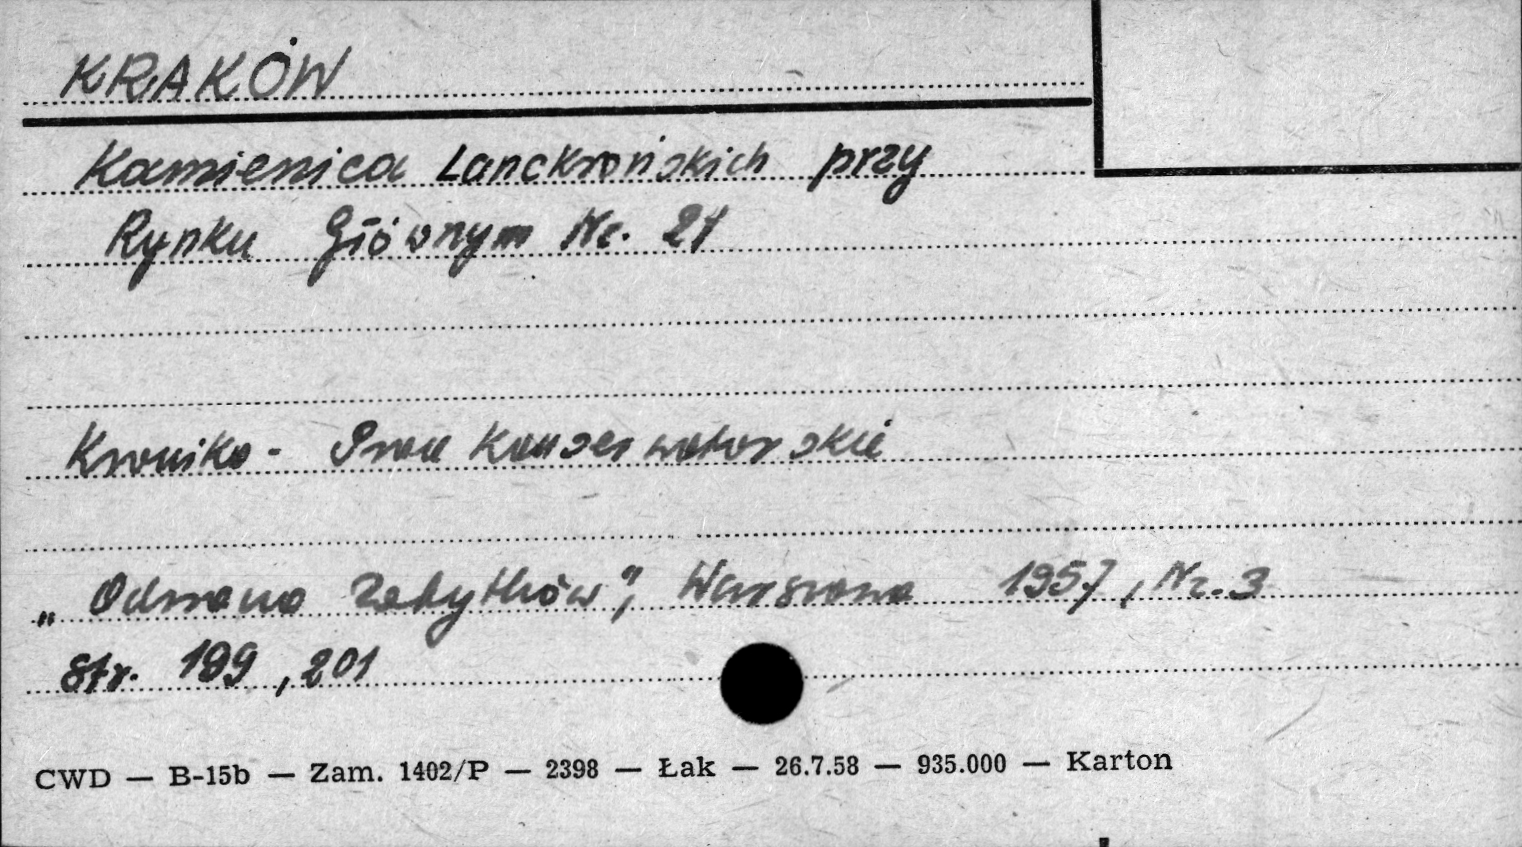 KRAKÓW
Kamienica Lanckrońskich przy
Rynku Głównym Nr. 21
Kronika - Prace Konserwatorskie
„Ochrona Zabytków", Warszawa 1957, Nr. 3
str. 199, 201
CWD — B-15b — Zam. 1402/P — 2398 — Łak — 26.7.58 — 935.000 — Karton